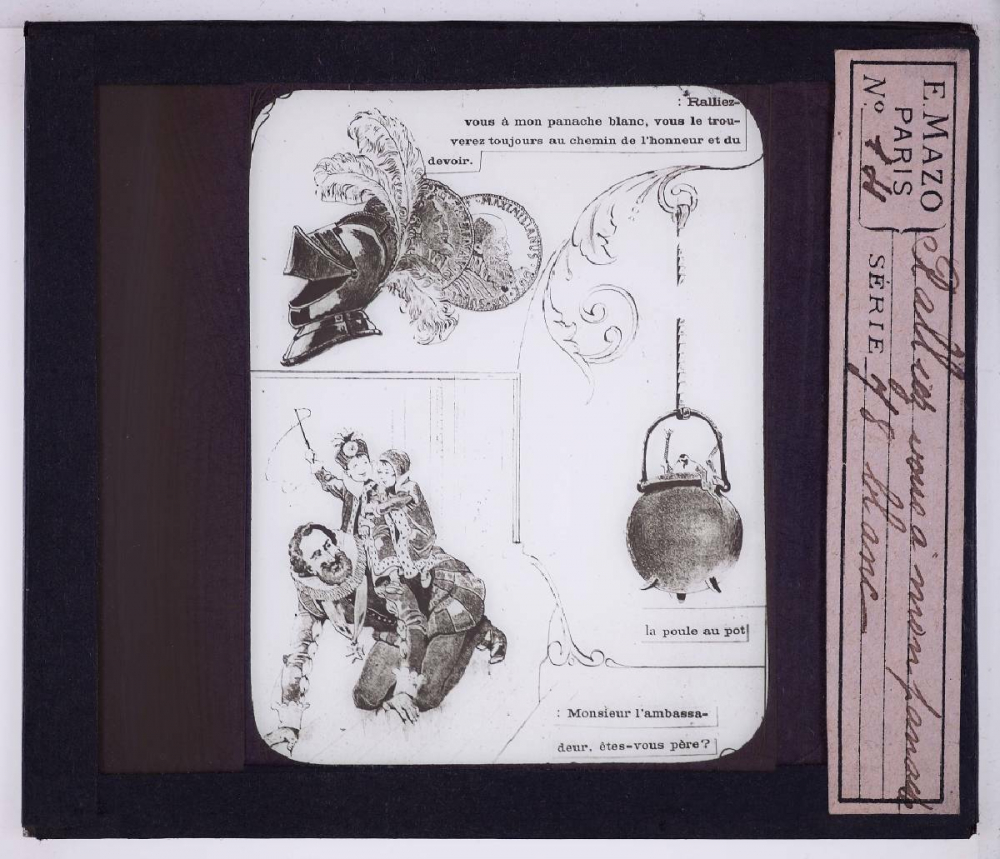 : Ralliez-
vous à mon panache blanc, vous le trou-
verez toujours au chemin de l'honneur et du
devoir.
MAXIMILIANUS
la poule au pot
: Monsieur l'ambassa-
deur, êtes-vous père?
E. MAZO
PARIS
No
SÉRIE
Ralliez vous à mon panache
blanc